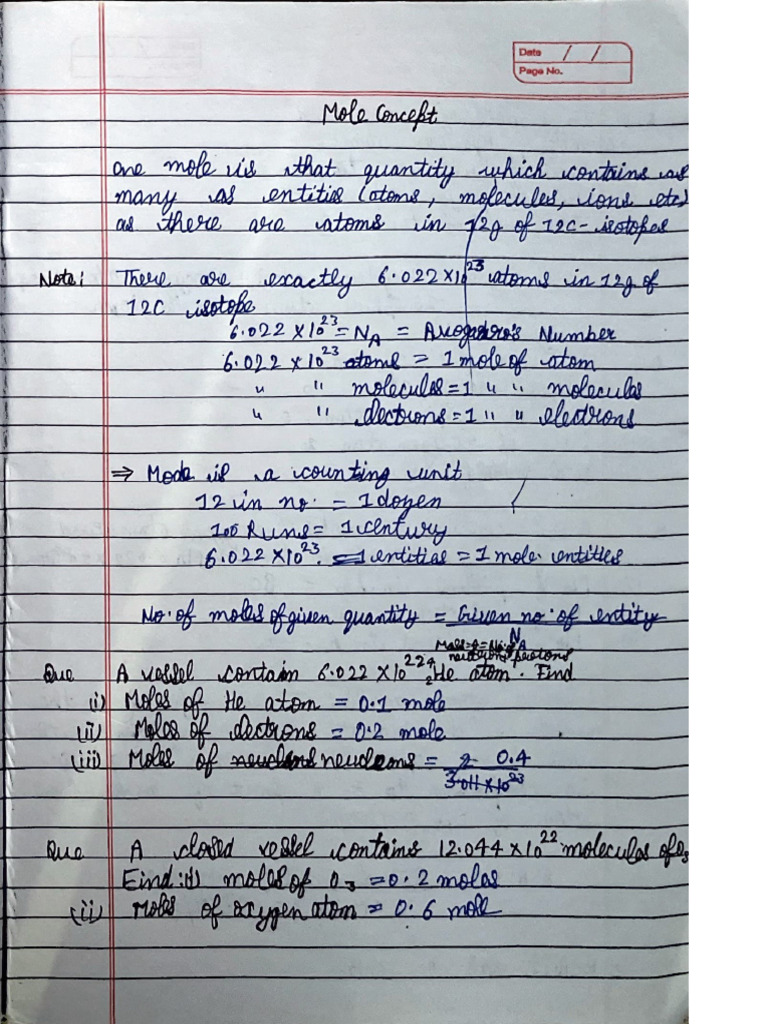 Date / /
Page No.
Mole Concept
One mole is that quantity which contains as
many as entities (atoms, molecules, ions etc)
as there are atoms in 12g of 12C-isotopes
Note: There are exactly 6.022 × 10²³ atoms in 12g of
12C isotope
6.022 × 10²³ = N_A = Avogadro's Number
6.022 × 10²³ atoms = 1 mole of atom
" " molecules = 1 " " molecules
" " electrons = 1 " " electrons
⇒ Mode is a counting unit
12 in no. = 1 dozen
100 Runs = 1 century
6.022 × 10²³ entities = 1 mole entities
No. of moles of given quantity = Given no. of entity
N
Mass = A = No. of
neutrons protons
Que A vessel contain 6.022 × 10²² ⁴₂He atom. Find
(i) Moles of He atom = 0.1 mole
(ii) Moles of electrons = 0.2 mole
(iii) Moles of neucleons = 0.4
3.011 × 10²³
Que A closed vessel contains 12.044 × 10²² molecules of O₃
Find: (i) moles of O₃ = 0.2 moles
(ii) Moles of oxygen atom = 0.6 mole